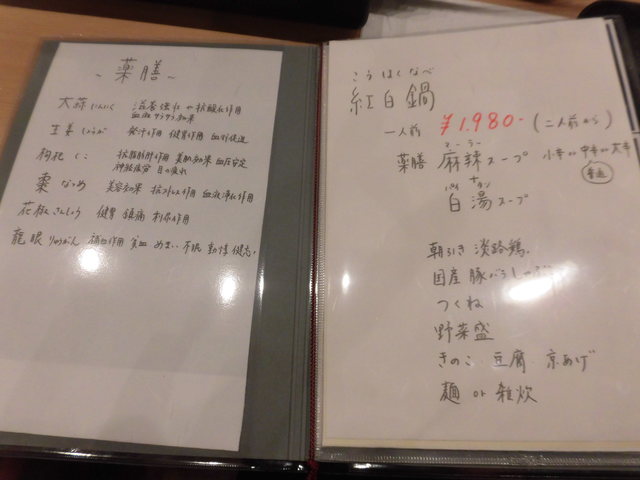 ～薬膳～
大蒜 にんにく 滋養強壮や抗酸化作用
血液サラサラ効果
生姜 しょうが 発汗作用 健胃作用 血行促進
枸杞 くこ 抗脂肪肝作用 美肌効果 血圧安定
神経疲労 目の疲れ
棗 なつめ 美容効果 抗ストレス作用 血液浄化作用
花椒 さんしょう 健胃 鎮痛 利尿作用
龍眼 りゅうがん 補血作用 貧血 めまい 不眠 動悸 健忘
こうはくなべ
紅白鍋
一人前 ¥1,980- (二人前から)
マーラー
薬膳 麻辣スープ 小辛 中辛 大辛
普通
パイ タン
白湯スープ
朝引き 淡路鶏
国産 豚バラしゃぶ
つくね
野菜盛
きのこ・豆腐・京あげ
麺 or 雑炊